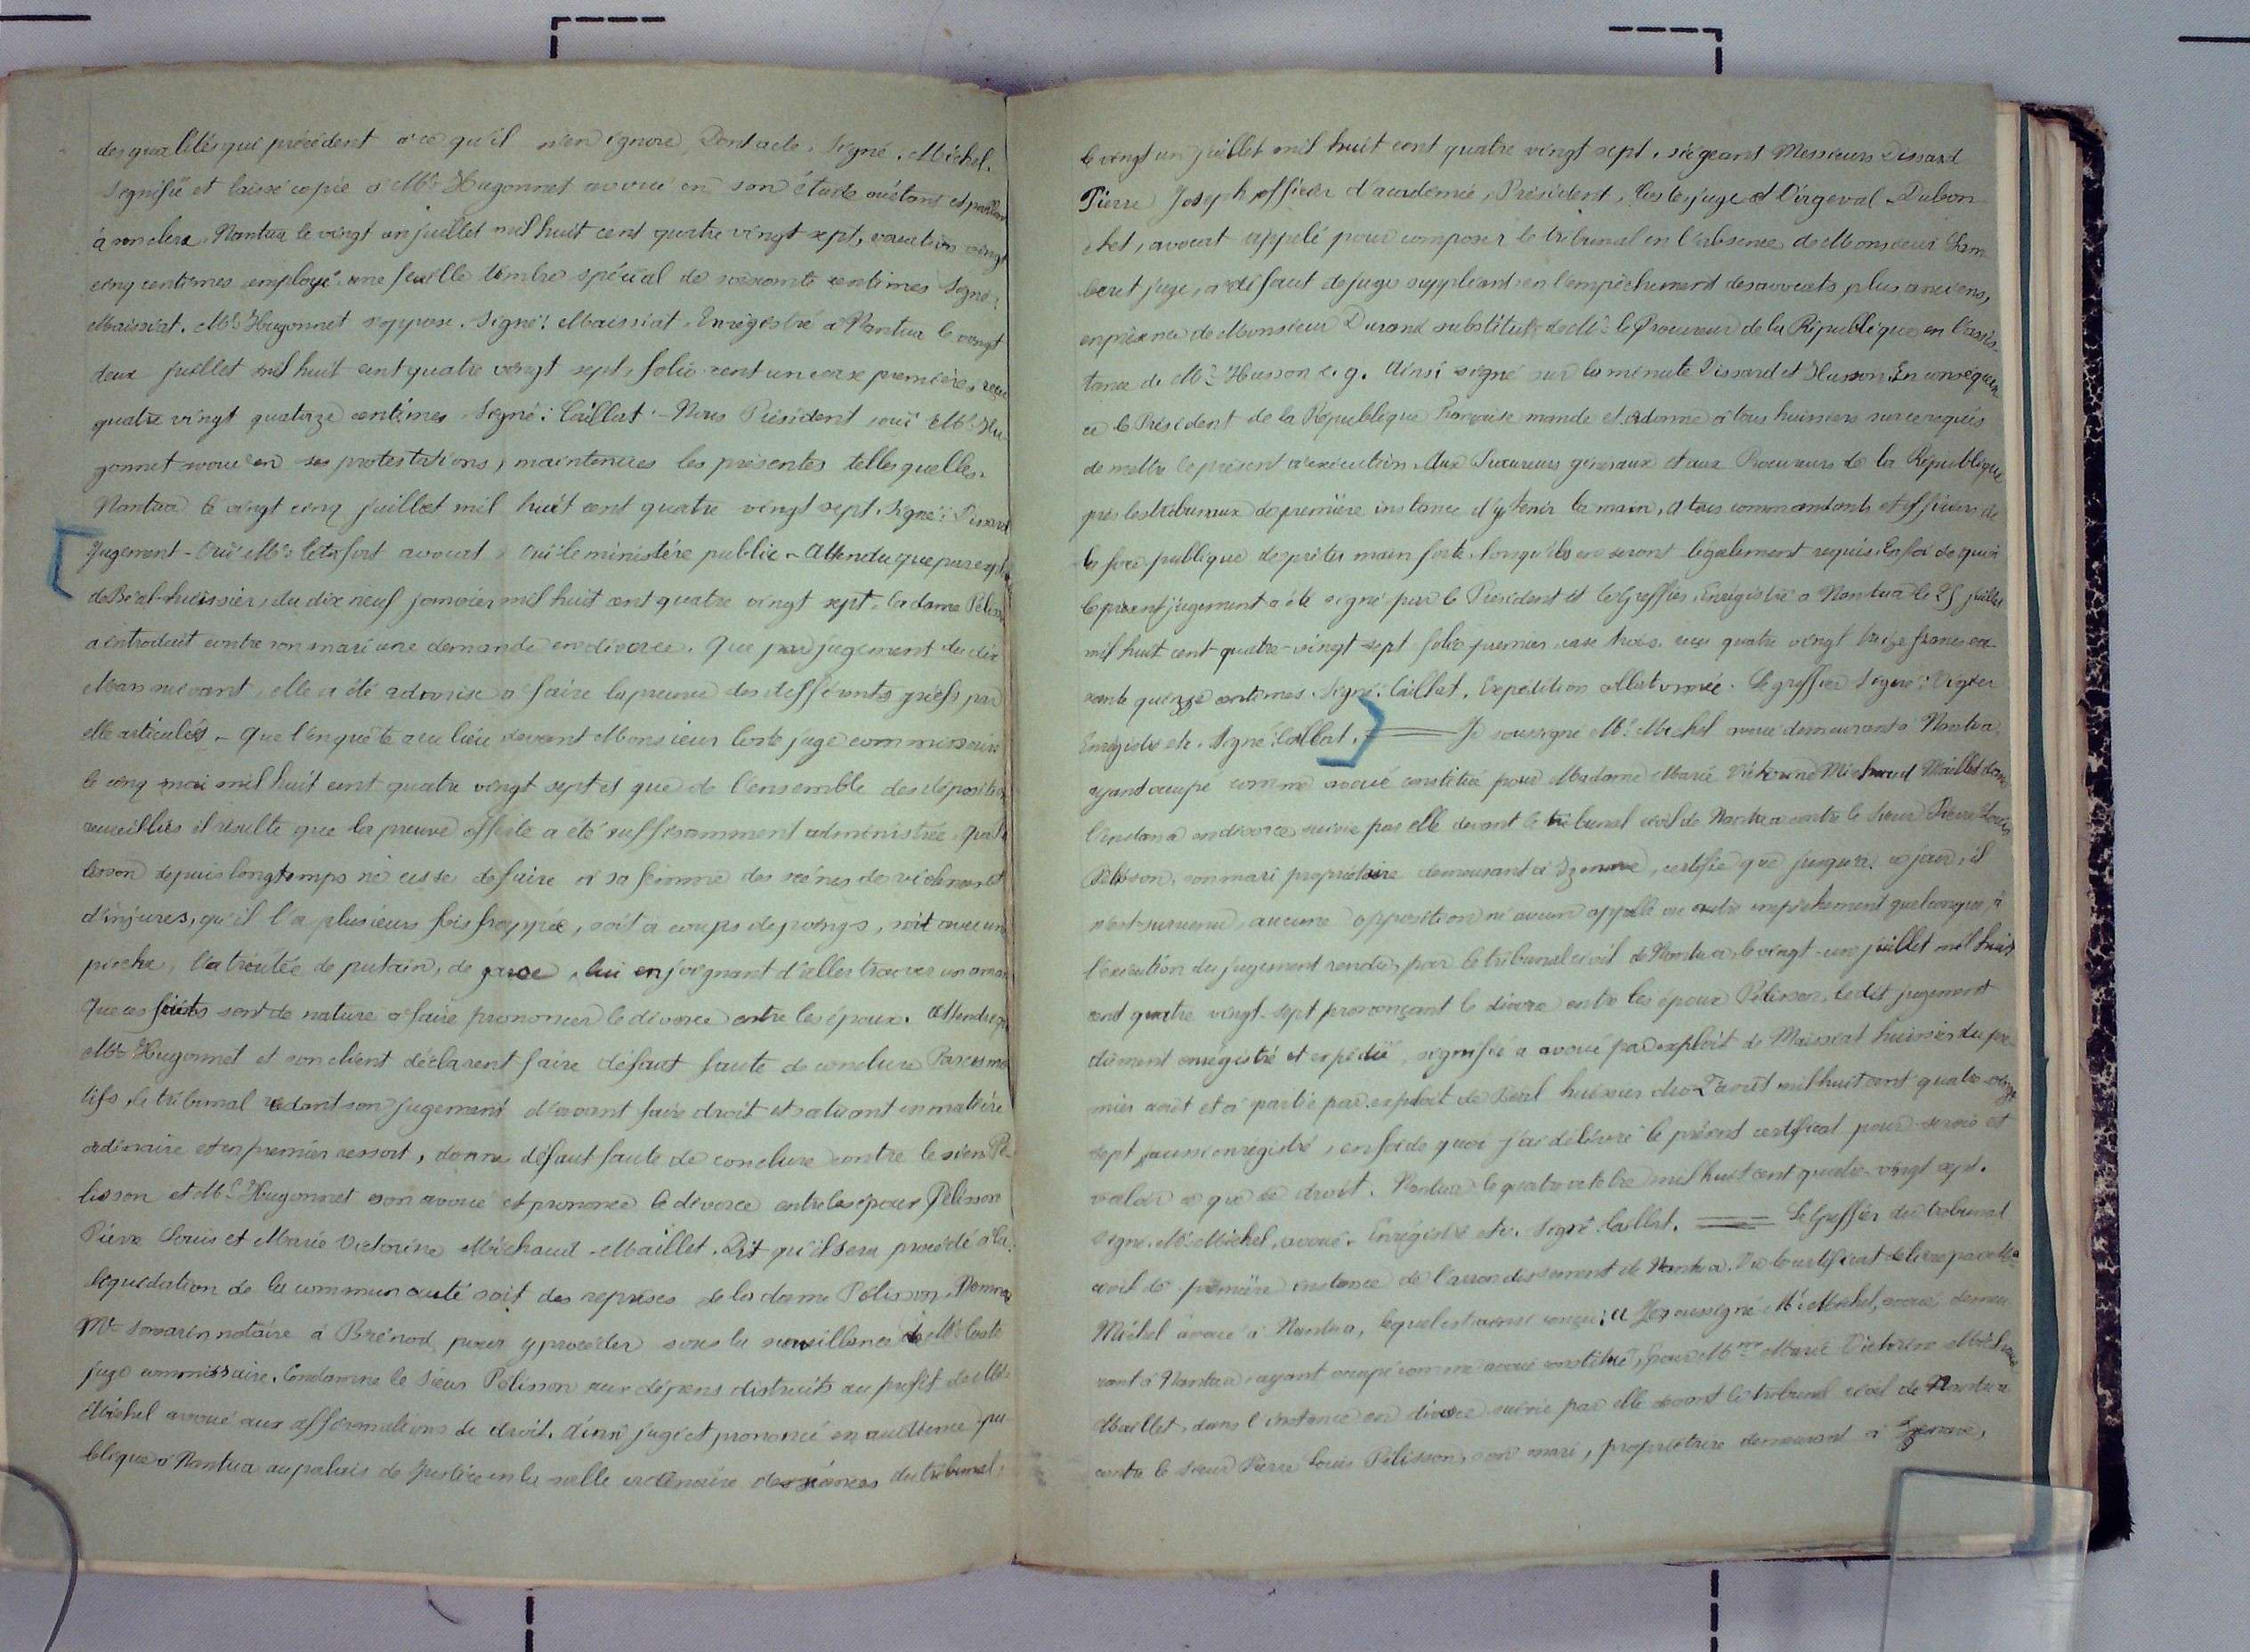 des qualités qui précédent à ce qu'il n'en ignore, Dont acte. Signé. Michel.
Signifié et laissé copie à Me Hugonnet avoué en son étude où étant et parlant
à son clerc. Nantua le vingt un juillet mil huit cent quatre vingt sept, vacation vingt
cinq centimes employé une feuille timbre spécial de soixante centimes Signé:
Maissiat. Me Hugonnet s'oppose. Signé: Maissiat. Enrégistré à Nantua le vingt
deux juillet mil huit cent quatre vingt sept, folio cent un case première, reçu
quatre vingt quatorze centimes Signé: Caillat. - Nous Président ouï Me Hu-
gonnet avoué en ses protestations, maintenues les présentes telles quelles.
Nantua le vingt cinq juillet mil huit cent quatre vingt sept. Signé: Dissard
Jugement - Ouï Me avocat, Ouï le ministère public - Attendu que par exploit
de Béal huissier, du dix neuf janvier mil huit cent quatre vingt sept, la dame Pélisson
a introduit contre son mari une demande en divorce. Que par jugement du dix
Mars suivant, elle a été admise à faire la preuve des différents griefs par
elle articulés - Que l'enquête a eu lieu devant Monsieur Coste juge commissaire
le cinq mai mil huit cent quatre vingt sept et que de l'ensemble des dépositions
recueillies il résulte que la preuve offerte a été suffisamment administrée. que Pé
lisson depuis longtemps ne cesse de faire à sa femme des scènes de violences et
d'injures, qu'il l'a plusieurs fois frappée, soit à coups de poings, soit avec une
pioche, l'a traitée de putain, de garce, lui enjoignant d'aller trouver un amant
Que ces faits sont de nature à faire prononcer le divorce entre les époux. Attendu que
Me Hugonnet et son client déclarent faire défaut faute de conclure Par ces mo
tifs, le tribunal vidant son jugement d'avant faire droit et statuant en matière
ordinaire et en premier ressort, donne défaut faute de conclure contre le sieur Pé-
lisson et Me Hugonnet son avoué et prononce le divorce entre les époux Pélisson
Pierre Louis et Marie Victorine Michaud-Maillet. Dit qu'il sera procédé à la
liquidation de la communauté soit des reprises de la dame Pélisson. Nomme
Me Savarin notaire à Brénod, pour y procéder sous la surveillance de Mr Coste
juge commissaire. Condamne le sieur Pélisson aux dépens distraits au profit de Me
Michel avoué aux affirmations de droit. Ainsi jugé et prononcé en audience pu-
blique à Nantua au palais de Justice en la salle ordinaire des séances du tribunal,
le vingt un juillet mil huit cent quatre vingt sept, siégeant Messieurs Dissard
Pierre Joseph, officier d'académie, Président, Coste, juge et Dirgeval-Dubon
chet, avocat appelé pour composer le tribunal en l'absence de Monsieur Lam
beret juge, à défaut de juge suppléant en l'empêchement des avocats plus anciens,
en présence de Monsieur Durand substitut de Mr le Procureur de la République en l'assis-
tance de Me Husson c. g. Ainsi signé sur la minute Dissard et Husson. En conséquen
ce le Président de la République Française mande et ordonne à tous huissiers sur ce requis
de mettre le présent à exécution. Aux Procureurs généraux et aux Procureurs de la République
près les tribunaux de première instance d'y tenir la main, à tous commandants et officiers de
la force publique de prêter main forte, lorsqu'ils en seront légalement requis. En foi de quoi
le présent jugement a été signé par le Président et le Greffier. Enrégistré à Nantua le 25 juillet
mil huit cent quatre-vingt sept folio premier, case trois, reçu quatre vingt treize francs soi-
xante quinze centimes. Signé: Caillat. Expédition collationnée. Le greffier Signé: Vigier
Enrégistré etc. Signé: Caillat. Je soussigné Me Michel avoué demeurant à Nantua,
ayant occupé comme avoué constitué pour Madame Marie Victorine Michaud Maillet dans
l'instance en divorce suivie par elle devant le tribunal civil de Nantua contre le Sieur Pierre Louis
Pélisson, son mari propriétaire demeurant à Izenave, certifie que jusqu'à ce jour, il
n'est survenu, aucune opposition ni aucun appelle ou autre empêchement quelconque, à
l'exécution du jugement rendu par le tribunal civil de Nantua, le vingt-un juillet mil huit
cent quatre vingt-sept prononçant le divorce entre les époux Pélisson, le dit jugement
dûment enrégistré et expédié, signifié à avoué par exploit de Maissiat huissier du pre
mier août et à partie par exploit de Béal huissier du 2 août mil huit cent quatre-vingt
sept, aussi enrégistré, en foi de quoi j'ai délivré le présent certificat pour servir et
valoir ce que de droit. Nantua le quatre octobre mil huit cent quatre-vingt sept.
Signé. Me Michel, avoué. Enrégistré etc. Signé: Caillat. Le Greffier du tribunal
civil de première instance de l'arrondissement de Nantua. Vu le certificat délivré par Me
Michel avoué à Nantua, lequel est ainsi conçu: « Je soussigné Me Michel, avoué, demeu
rant à Nantua, ayant occupé comme avoué constitué, pour Mme Marie Victorine Michaud
Maillet, dans l'instance en divorce suivie par elle devant le tribunal civil de Nantua
contre le sieur Pierre Louis Pélisson, son mari, propriétaire demeurant à Izenave,